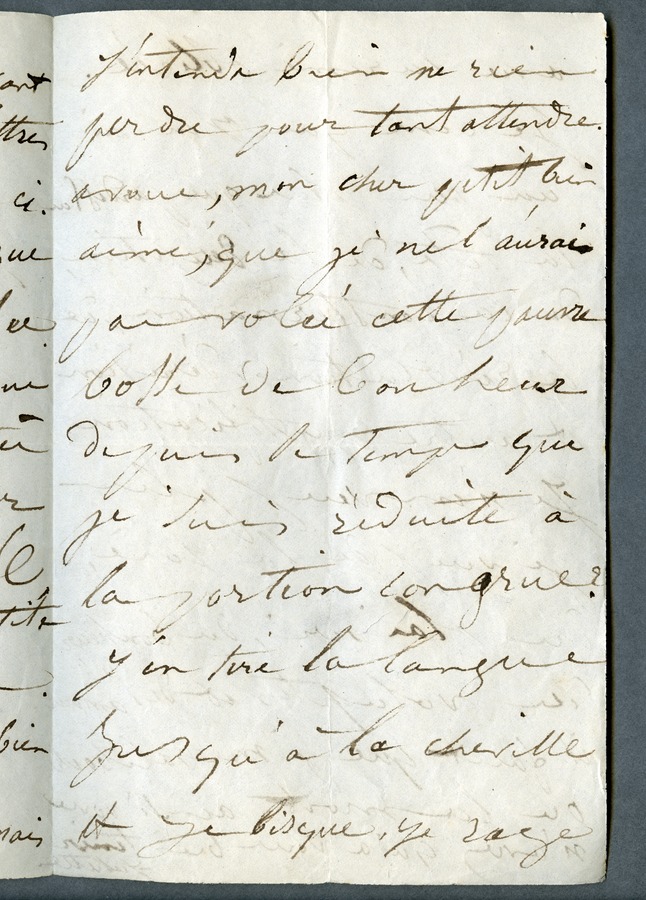 ant
J'entends bien ne rien
ttres
perdre pour tant attendre.
ci.
avoue, mon cher petit bien
que
aimé, que je ne l'aurai
pas volée cette pauvre
ne
bosse de bonheur
depuis le temps que
je suis réduite à
la portion congrue?
tite
J'en tire la langue
bien
jusqu'à la cheville
mais
et je bisque, je rage